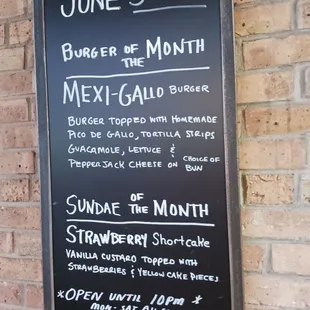 JUNE
BURGER OF MONTH
THE
MEXI-GALLO BURGER
BURGER TOPPED WITH HOMEMADE
PICO DE GALLO, TORTILLA STRIPS
GUACAMOLE, LETTUCE &
PEPPERJACK CHEESE ON CHOICE OF
BUN
SUNDAE OF THE MONTH
STRAWBERRY Shortcake
VANILLA CUSTARD TOPPED WITH
STRAWBERRIES & YELLOW CAKE PIECES
*OPEN UNTIL 10PM *
MON-SAT